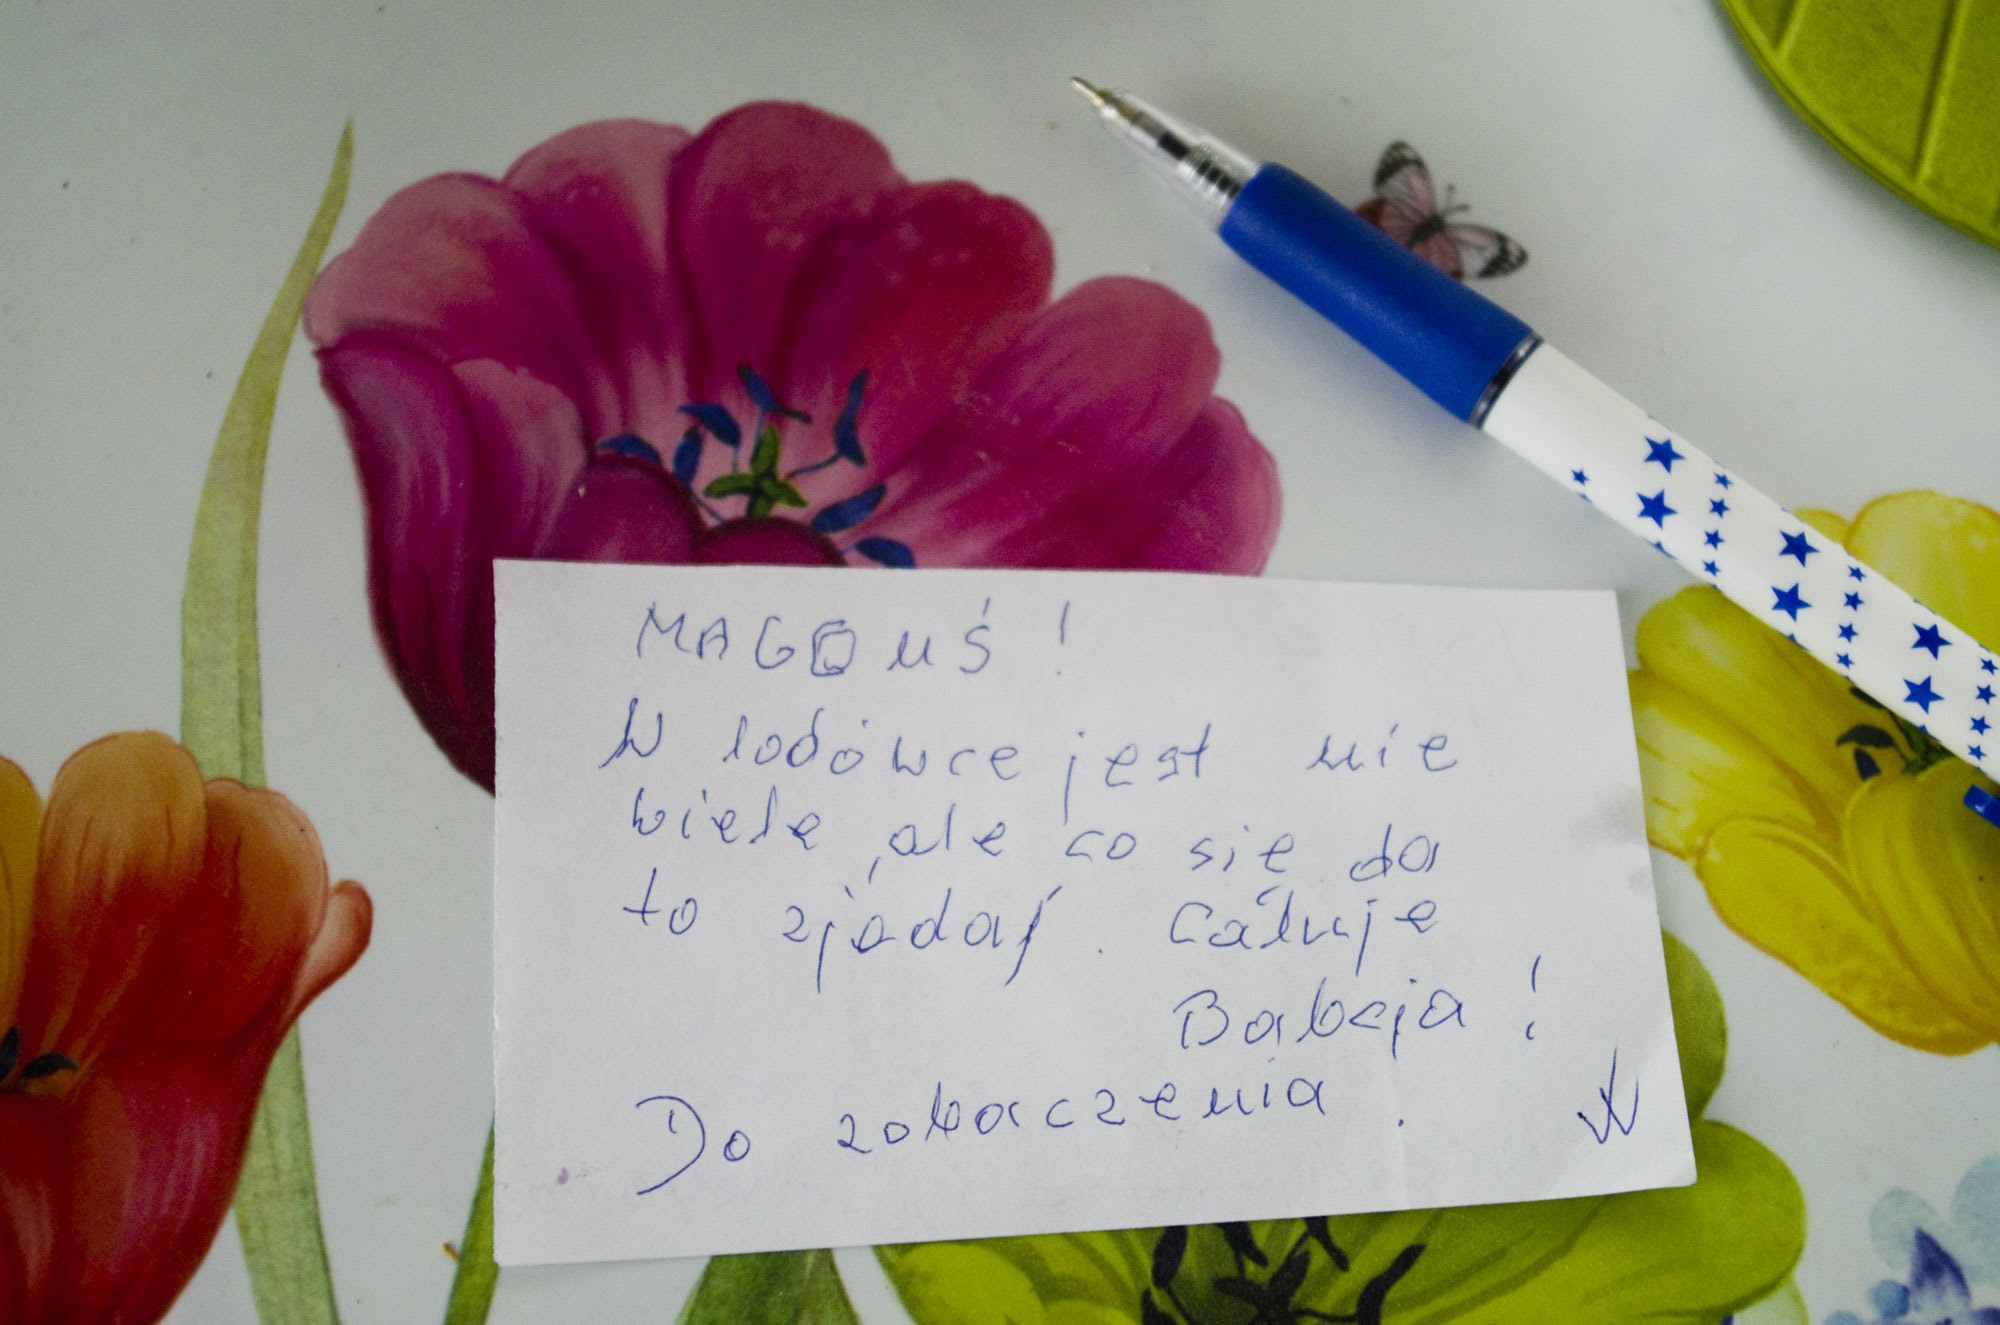 MAGDUŚ!
W lodówce jest nie
wiele, ale co się da
to zjadaj. Całuję
Babcja!
Do zobaczenia.